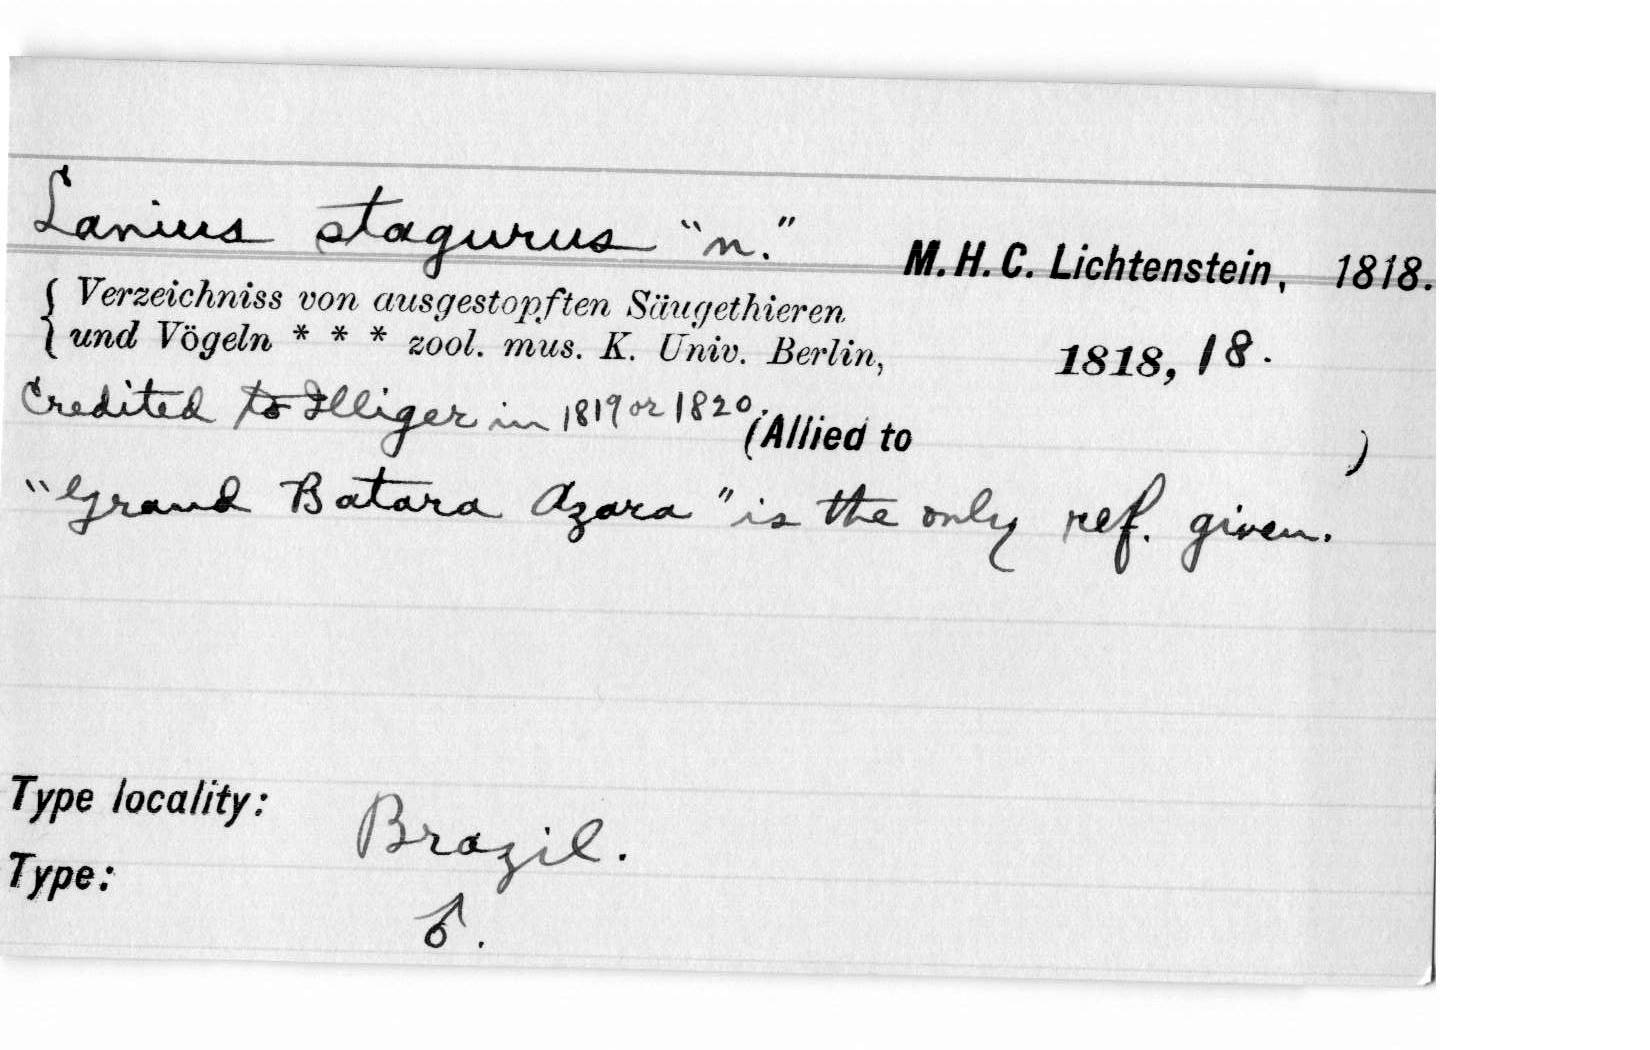 Lanius stagurus "n." M.H.C. Lichtenstein, 1818.
{ Verzeichniss von ausgestopften Säugethieren
{ und Vögeln * * * zool. mus. K. Univ. Berlin, 1818, 18.
Credited to Illiger in 1819 or 1820.
(Allied to )
"Grand Batara Azara" is the only ref. given.
Type locality: Brazil.
Type: ♂.